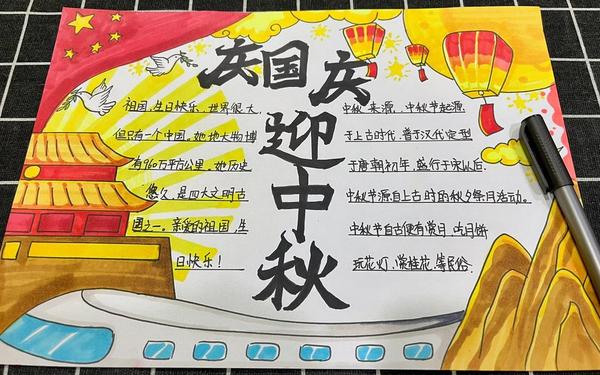 庆国庆
迎中秋
祖国，生日快乐，世界很大，
但只有一个中国，她地大物博
有960万平方公里，她历史
悠久，是四大文明古
国之一。亲爱的祖国，生
日快乐！
中秋来源，中秋节起源
于上古时代，普于汉代定型
于唐朝初年，盛行于宋以后.
中秋节源自上古时的秋夕祭月活动。
中秋节自古便有赏月，吃月饼
玩花灯，赏桂花，等民俗.